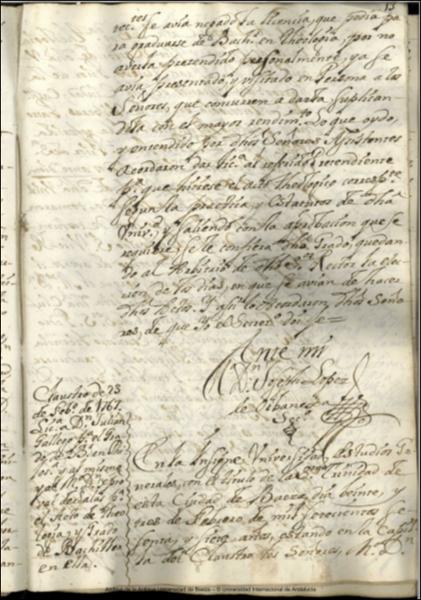 13
res. se avia negado la licencia, que pedia pa-
ra graduarse de Bachr. en Theologia, por no
averla pretendido personalmente, ya se
avia presentado, y visitado en forma a los
Señores, que concurren a darla suplican-
dola con el mayor rendimto. Lo que oydo,
y entendido por dhos Señores Assistentes
acordaron dar lica. al referido pretendiente
pa. que hiciese el acto Theologico correspte.
segun la practica, y Estatutos de dha
Univd. y saliendo con la aprobacion que se
requiere, se le confiera dho Grado, quedan-
do al Arbitrio de dho Sr. Rector la elec-
cion de los dias, en que se avian de hacer
dhos Actos. Y assi lo Acordaron dhos Seño-
res, de que Yo el Secreo. doi fe=
Ante mi
Dn. Joseph Lopez
de
Secro.
Claustro de 23
de Febo. de 1767.
Lica. a Dn. Julian
Gallego pa. el Gra-
do de Br. en
y assimismo
pa.
el Acto de Theo-
logia, y Grado
de Bachiller
en ella.
En la Insigne Universidad, y Estudios Ge-
nerales, con el titulo de la SSma. Trinidad de
esta Ciudad de Baeza dia veinte, y
tres de Febrero de mil, setecientos se-
senta, y siete años, estando en la Capi-
lla del Claustro los Señores, M. Dn.
Archivo de la Antigua Universidad de Baeza - © Universidad Internacional de Andalucía